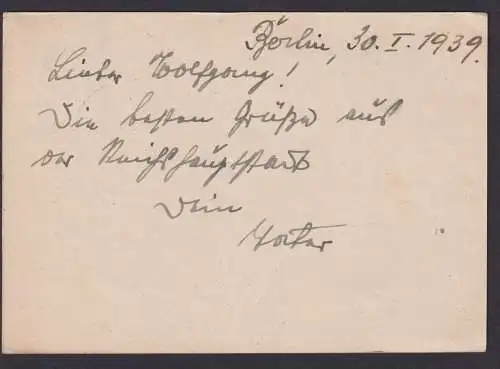 Berlin, 30. I. 1939.
Lieber Wolfgang!
Die besten Grüße aus
der Reichshauptstadt
Dein
Vater